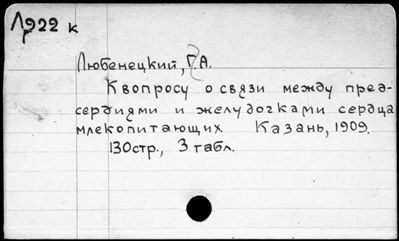 Лр922 к
Любенецкий, Г.А.
К вопросу о связи между пред-
сердиями и желудочками сердца
млекопитающих. Казань, 1909.
130стр., 3 табл.